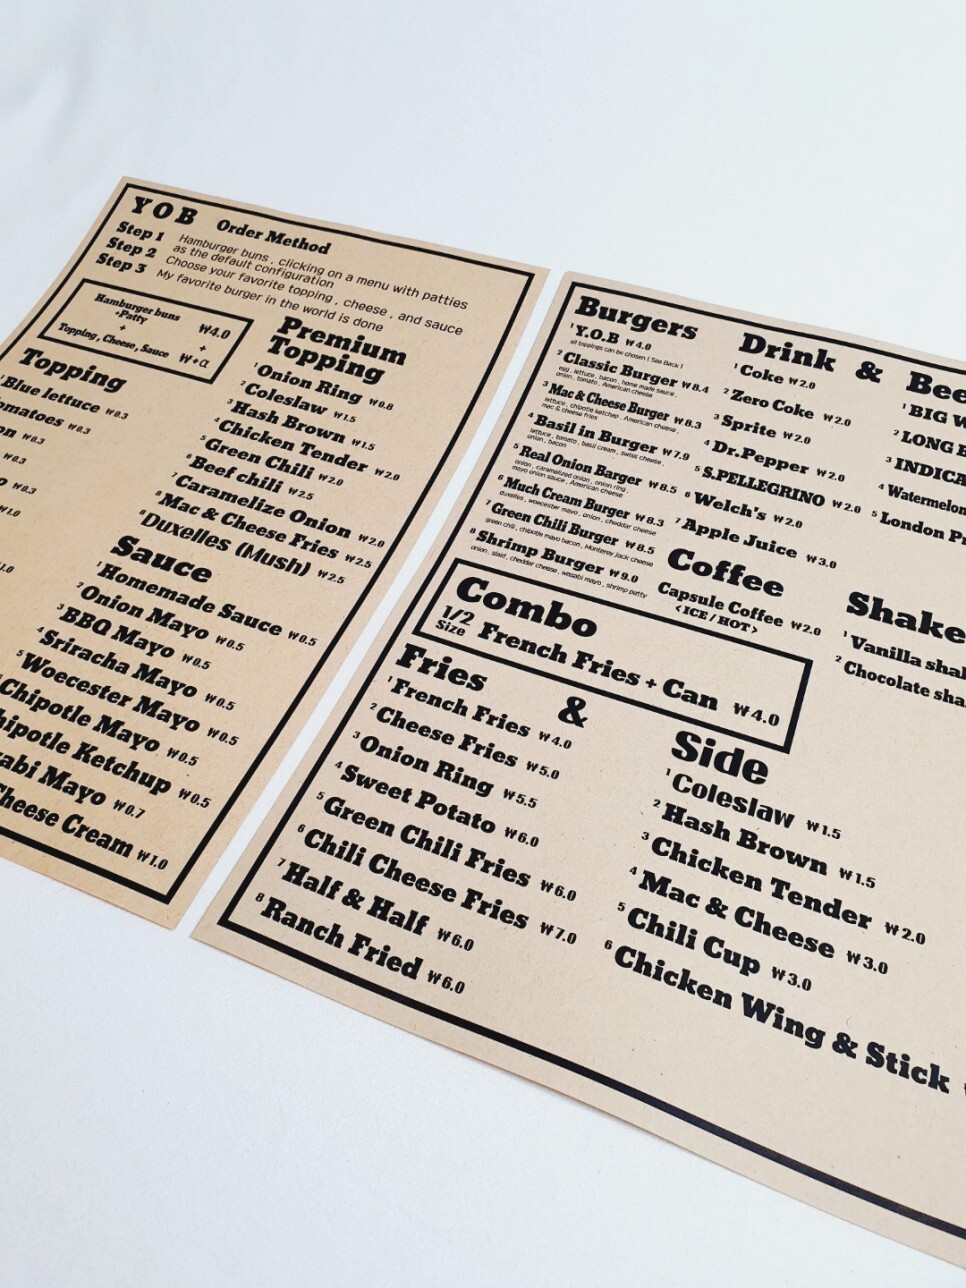 YOB Order Method
Step 1 Hamburger buns , clicking on a menu with patties
as the default configuration
Step 2 Choose your favorite topping , cheese , and sauce
Step 3 My favorite burger in the world is done
Hamburger buns
+Patty
₩4.0
+
+
Topping, Cheese, Sauce ₩+α
Topping
1 Blue lettuce ₩0.3
₩0.3
₩0.3
₩0.3
₩0.3
₩1.0
Premium
Topping
1 Onion Ring ₩0.8
2 Coleslaw ₩1.5
3 Hash Brown ₩1.5
4 Chicken Tender ₩2.0
5 Green Chili ₩2.0
6 Beef chili ₩2.5
7 Caramelize Onion ₩2.0
8 Mac & Cheese Fries ₩2.5
9 Duxelles (Mush) ₩2.5
Sauce
1 Homemade Sauce ₩0.5
2 Onion Mayo ₩0.5
3 BBQ Mayo ₩0.5
4 Sriracha Mayo ₩0.5
5 Woecester Mayo ₩0.5
Chipotle Mayo ₩0.5
Ketchup ₩0.5
Mayo ₩0.7
Cheese Cream ₩1.0
Burgers
1 Y.O.B ₩4.0
all toppings can be chosen ( See Back )
2 Classic Burger ₩8.4
egg , lettuce , bacon , home made sauce ,
onion , tomato , American cheese
3 Mac & Cheese Burger ₩8.3
lettuce , chipotle ketchep , American cheese ,
mac & cheese fries
4 Basil in Burger ₩7.9
lettuce , tomato , basil cream , swiss cheese ,
onion , bacon
5 Real Onion Barger ₩8.5
onion , caramelized onion , onion ring ,
mayo onion sauce , American cheese
6 Much Cream Burger ₩8.3
duxelles , woecester mayo , onion , cheddar cheese
7 Green Chili Burger ₩8.5
green chili , chipotle mayo bacon , Monterey jack cheese
8 Shrimp Burger ₩9.0
onion , slaid , cheddar cheese , wasabi mayo , shrimp patty
Drink & 
1 Coke ₩2.0
2 Zero Coke ₩2.0
3 Sprite ₩2.0
4 Dr.Pepper ₩2.0
5 S.PELLEGRINO ₩2.0
6 Welch's ₩2.0
7 Apple Juice ₩3.0
1 BIG
2 LONG
3 INDICA
4 Watermelon
5 London
Coffee
Capsule Coffee ₩2.0
<ICE / HOT>
Shake
1 Vanilla
2 Chocolate
Combo
1/2
Size French Fries + Can ₩4.0
Fries & Side
1 French Fries ₩4.0
2 Cheese Fries ₩5.0
3 Onion Ring ₩5.5
4 Sweet Potato ₩6.0
5 Green Chili Fries ₩6.0
6 Chili Cheese Fries ₩7.0
7 Half & Half ₩6.0
8 Ranch Fried ₩6.0
1 Coleslaw ₩1.5
2 Hash Brown ₩1.5
3 Chicken Tender ₩2.0
4 Mac & Cheese ₩3.0
5 Chili Cup ₩3.0
6 Chicken Wing & Stick